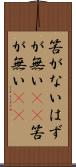 筈がないはず
が無い筈
が無い